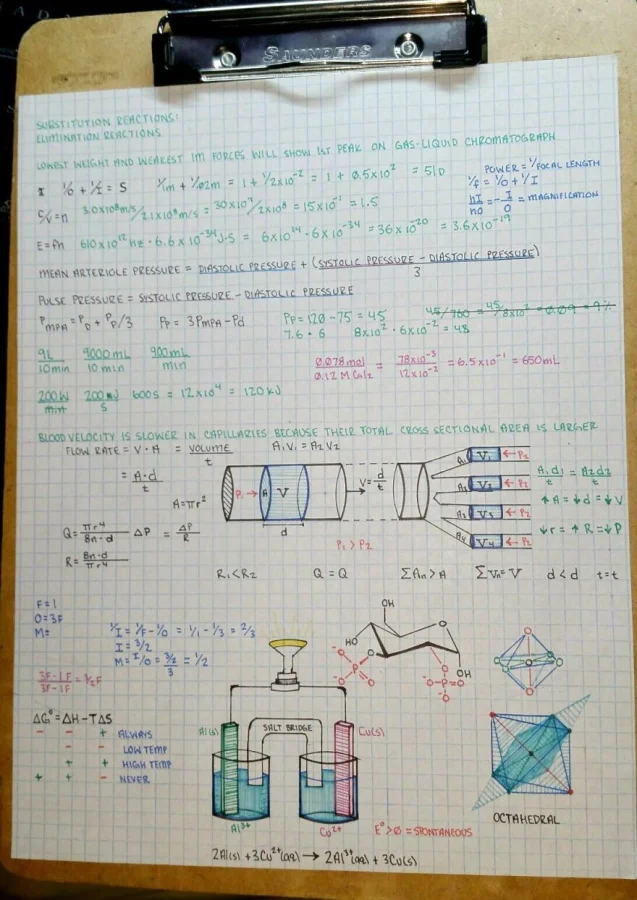 SAUNDERS
SUBSTITUTION REACTIONS:
ELIMINATION REACTIONS
LOWEST WEIGHT AND WEAKEST IM FORCES WILL SHOW 1ST PEAK ON GAS-LIQUID CHROMATOGRAPH
1/O + 1/I = S 1/1m + 1/.02m = 1 + 1/2x10⁻² = 1 + 0.5x10² = 510
POWER = 1/FOCAL LENGTH
1/f = 1/O + 1/I
hI/hO = -I/O = MAGNIFICATION
C/V = n 3.0x10⁸m/s / 2.1x10⁸m/s = 30x10⁷/2x10⁸ = 15x10⁻¹ = 1.5
E = fh 610x10¹²hz · 6.6x10⁻³⁴J·S = 6x10¹⁴ · 6x10⁻³⁴ = 36x10⁻²⁰ = 3.6x10⁻¹⁹
MEAN ARTERIOLE PRESSURE = DIASTOLIC PRESSURE + (SYSTOLIC PRESSURE - DIASTOLIC PRESSURE)/3
PULSE PRESSURE = SYSTOLIC PRESSURE - DIASTOLIC PRESSURE
PMPA = PD + PP/3 PP = 3PMPA - Pd PP = 120 - 75 = 45 45/760 = 45/8x10² = 0.09 = 9%
7.6 · 6 8x10² · 6x10⁻² = 48
9L/10min 9000mL/10min 900mL/min
0.078mol/0.12 M CaI₂ = 78x10⁻³/12x10⁻² = 6.5x10⁻¹ = 650mL
200W/min 200J/S 600s = 12x10⁴ = 120kJ
BLOOD VELOCITY IS SLOWER IN CAPILLARIES BECAUSE THEIR TOTAL CROSS SECTIONAL AREA IS LARGER
FLOW RATE = V · A = VOLUME/t A₁V₁ = A₂V₂
= A·d/t
A = πr²
P₁ → A V d
V = d/t
P₁ > P₂
A₁ V₁ ← P₂
A₂ V₂ ← P₂
A₃ V₃ ← P₂
A₄ V₄ ← P₂
A₁d₁/t = A₂d₂/t
↑A = ↓d = ↓V
↓r = ↑R = ↓P
Q = πr⁴/8η·d ΔP = ΔP/R
R = 8η·d/πr⁴
R₁ < R₂ Q = Q ΣAn > A ΣVn = V d < d t = t
F = 1
O = 3F
M =
1/I = 1/F - 1/O = 1/1 - 1/3 = 2/3
I = 3/2
M = I/O = 3/2/3 = 1/2
3F·1F/3F-1F = 3/2F
ΔG° = ΔH - TΔS
- - + ALWAYS
- - LOW TEMP
+ + HIGH TEMP
+ + - NEVER
OH
HO
O
OH
⁻O P O O⁻
O-P-O⁻
Al(s)
SALT BRIDGE
Cu(s)
Al³⁺
Cu²⁺
E° > 0 = SPONTANEOUS
OCTAHEDRAL
2Al(s) + 3Cu²⁺(aq) → 2Al³⁺(aq) + 3Cu(s)